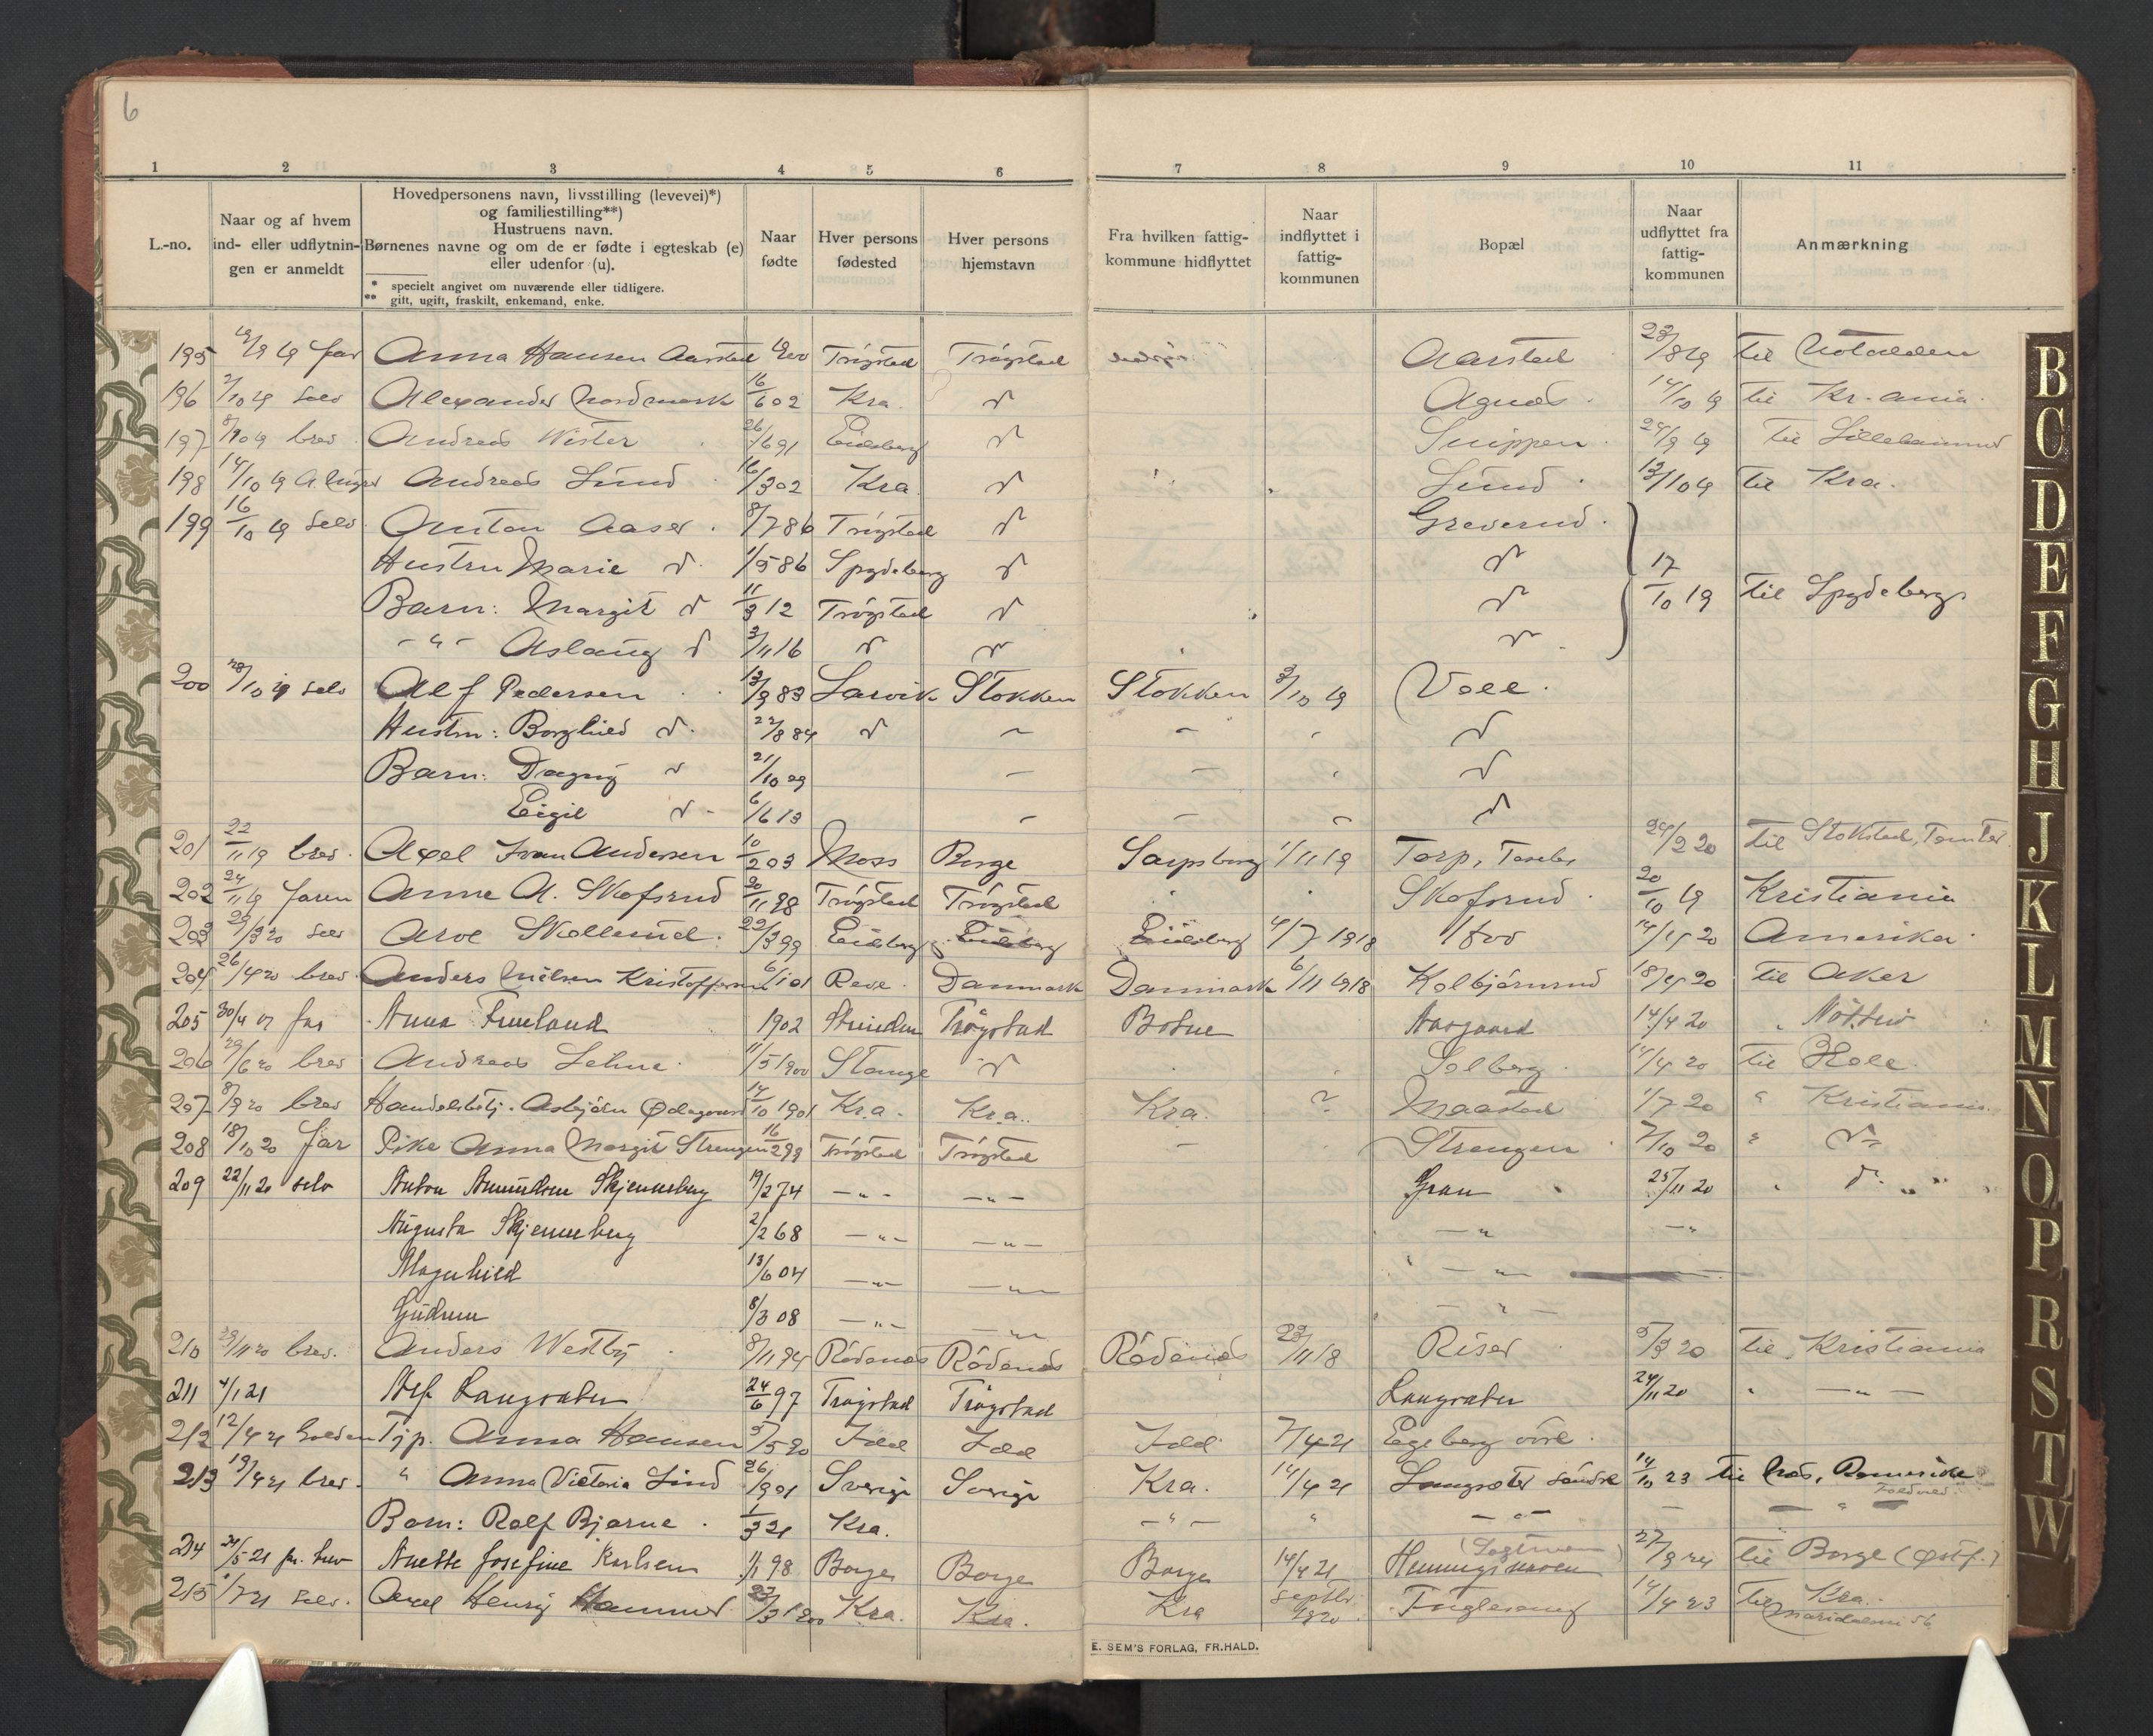 6
1 2 3 4 5 6 7 8 9 10 11
L.-no.
Naar og af hvem ind- eller udflytnin-gen er anmeldt
Hovedpersonens navn, livsstilling (levevei)*) og familiestilling**) Hustruens navn. Børnenes navne og om de er fødte i egteskab (e) eller udenfor (u).
* specielt angivet om nuværende eller tidligere.
** gift, ugift, fraskilt, enkemand, enke.
Naar fødte
Hver persons fødested
Hver persons hjemstavn
Fra hvilken fattig-kommune hidflyttet
Naar indflyttet i fattig-kommunen
Bopæl
Naar udflyttet fra fattig-kommunen
Anmærkning
195 19/9 19 far Anna Hansen Aarstad 1900 Trøgstad Trøgstad Aarstad 23/8 19 til Notodden
196 2/10 19 selv Alexander Nordmark 16/6 02 Kra. " Agnæs 14/10 19 til Kr.ania.
197 8/10 19 brev Andreas Wister 26/6 91 Eidsberg " Snippen 24/9 19 til Lillehammer
198 14/10 19 Andreas Lund 16/3 02 Kra " Lund 13/10 19 til Kra.
199 16/10 19 selv Anton Aaser 8/7 86 Trøgstad " Greverud
Hustru Marie " 1/5 86 Spydeberg " "
Barn: Margit " 11/3 12 Trøgstad " " 17/10 19 til Spydeberg
-"- Aslaug " 3/11 16 " " "
200 28/10 19 selv Alf Pedersen 13/9 83 Larvik Stokken Stokken 3/10 19 Voll.
Hustru: Borghild " 22/8 84 " - - "
Barn: Dagny " 21/10 09 - - "
Eigil " 6/6 13 - - "
201 22/11 19 brev Axel Ivan Andersen 10/2 03 Moss Borge Sarpsborg 1/11 19 Torp, 24/2 20 til Stokstad, Tomter
202 24/11 19 faren Anne A. Skofsrud 20/11 98 Trøgstad Trøgstad Skofsrud 20/10 19 Kristiania
203 29/3 20 selv Arve Skollerud 22/3 99 Eidsberg Eidsberg Eidsberg 4/7 1918 14/4 20 Amerika
204 26/4 20 brev Anders Nielsen Kristoffersen 6/1 01 Danmark Danmark 6/11 1918 Kolbjørnrud 18/4 20 til Aker
205 30/4 far Anna Fineland 1902 Trøgstad Botne Aasgaard 14/4 20 " Nøtterø
206 29/6 20 brev Andreas Lehne 11/5 1900 Stange " Solberg 14/4 20 til Hole
207 8/9 20 brev Handelsbetj. Asbjørn Ødegaard 14/10 1901 Kra. Kra. Kra. ? Maastad 1/7 20 " Kristiania
208 18/10 20 far Pike Anna Margit Strengen 16/2 99 Trøgstad Trøgstad - Strengen 7/10 20 " "
209 22/11 20 selv Anton Amundsen Skjenneberg 19/2 74 -"- -"- Gran 25/11 20 " "
Augusta Skjenneberg 2/2 68 -"- -"- -"- -"
Magnhild 13/6 04 -"- -"- -"-
Gudrun 8/3 08 -"- -"- -"-
210 29/11 20 brev. Anders Westby 8/11 94 Rødenæs Rødenæs Rødenæs 23/11 18 Riser 5/3 20 til Kristiania
211 4/1 21 Alf Langsæter 24/6 97 Trøgstad Trøgstad Langsæter 24/11 20 " -"-
212 12/4 21 Tjp. Anna Hansen 5/5 20 Idd Idd Idd 7/4 21 Egeberg øvre
213 19/4 21 brev. " Anna Victoria Lind 26/9 01 Sverige Sverige Kra. 14/4 21 Langsæter søndre 14/10 23 til Næs, Romerike
Barn: Rolf Bjarne 1/3 21 Kra. -"- " -"- - - " -
214 24/5 21 Anette Josefine Karlsen 1/1 98 Borge Borge Borge 14/4 21 27/9 24 til Borge (Østf.)
215 1/7 21 selv. Axel Henry Hammer 23/3 1900 Kra. Kra. Kra Septbr. 1920 Fuglesang 14/4 23 til Kra.
Maridalsvn 56
E. SEM'S FORLAG, FR.HALD.
B
C
D
E
F
G
H
J
K
L
M
N
O
P
R
S
T
W